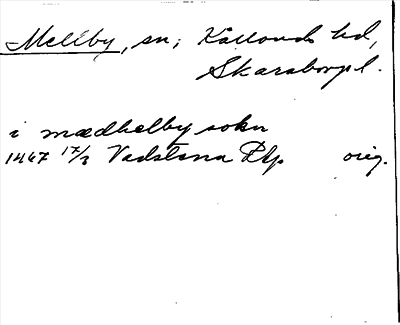 Mellby, sn; Kållands hd,
Skaraborgs l.
i mædhelby sokn
1447 17/2 Vadstena Ptp orig.